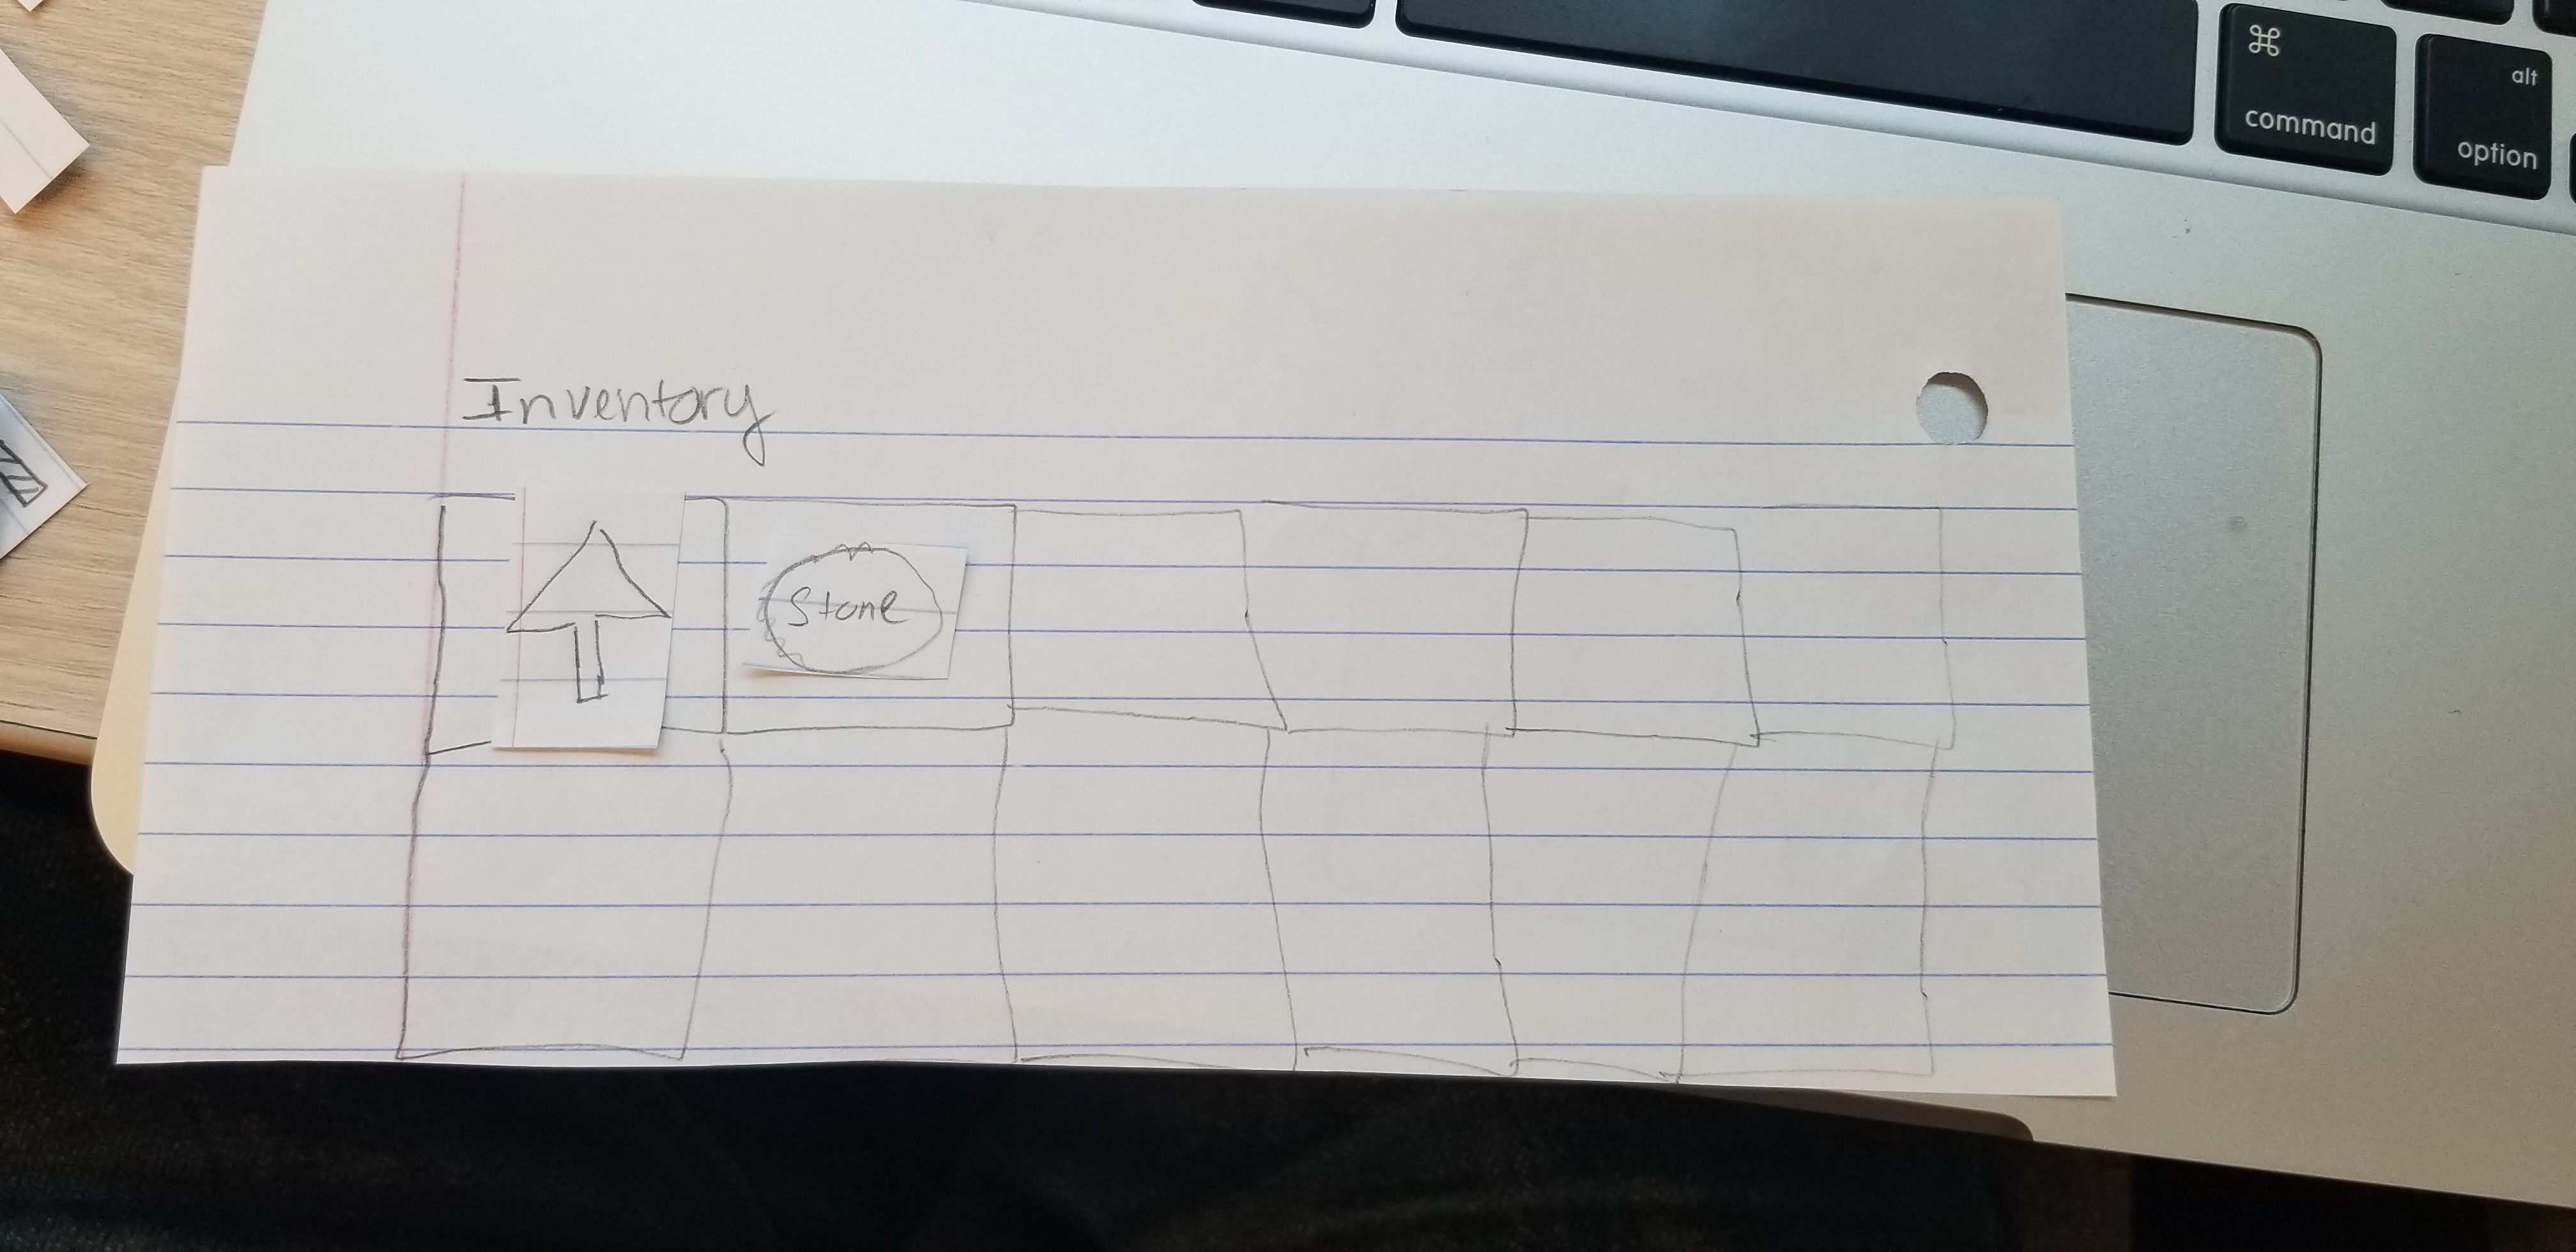 ⌘
command
alt
option
Inventory
Stone